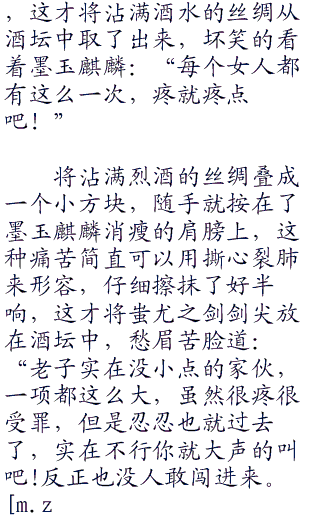 ，这才将沾满酒水的丝绸从
酒坛中取了出来，坏笑的看
着墨玉麒麟：“每个女人都
有这么一次，疼就疼点
吧！”
将沾满烈酒的丝绸叠成
一个小方块，随手就按在了
墨玉麒麟消瘦的肩膀上，这
种痛苦简直可以用撕心裂肺
来形容，仔细擦抹了好半
响，这才将蚩尤之剑剑尖放
在酒坛中，愁眉苦脸道：
“老子实在没小点的家伙，
一项都这么大，虽然很疼很
受罪，但是忍忍也就过去
了，实在不行你就大声的叫
吧!反正也没人敢闯进来。
[m.z